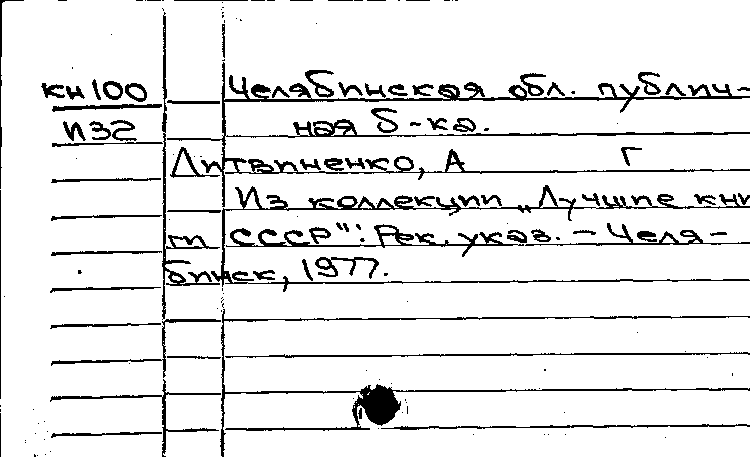 кн100 Челябинская обл. публич-
И32 ная б-ка.
Литвиненко, А Г
Из коллекции „Лучшие кни
ги СССР": Рек. указ. - Челя-
бинск, 1977.